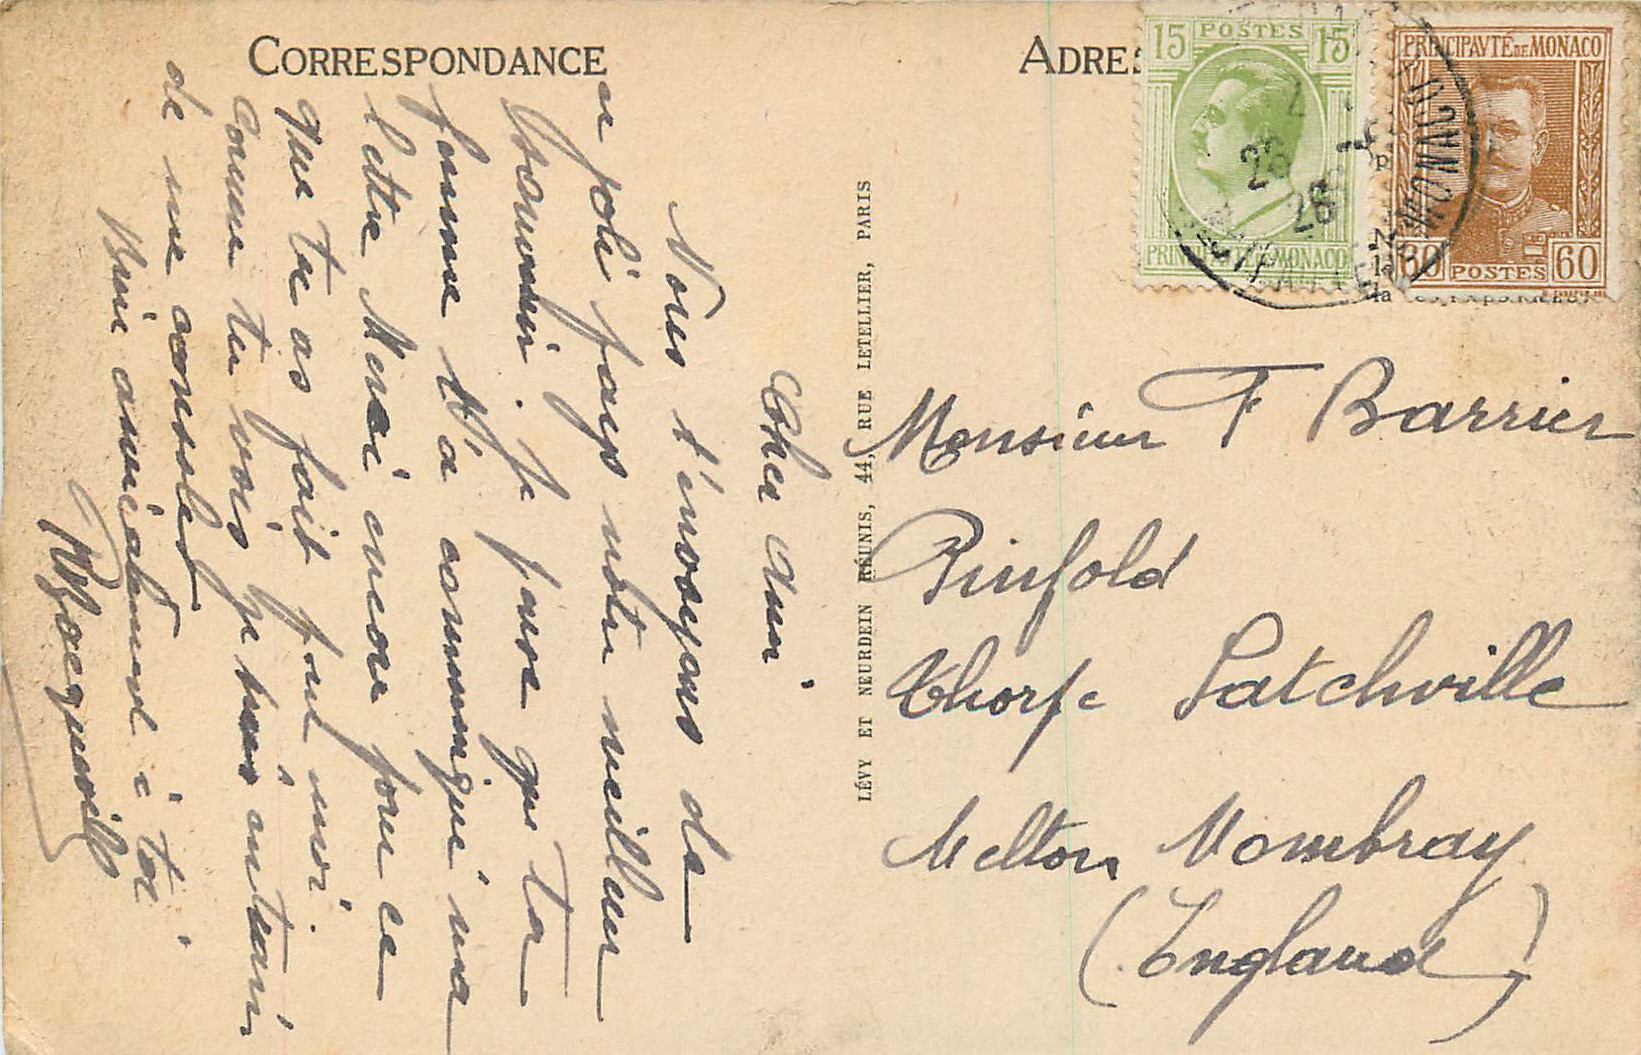 CORRESPONDANCE
Cher Ami
Nous t'envoyons de
ce joli pays notre meilleur
souvenir. Je pense que ta
femme t'a communiqué ma
lettre Merci encore pour ce
que tu as fait pour moi.
Comme tu vois je suis en train
de me consoler
Bien amicalement à toi
LÉVY ET NEURDEIN RÉUNIS, 44, RUE LETELLIER, PARIS
ADRES
15 POSTES 15
PRINCIPAUTÉ DE MONACO
PRINCIPAVTÉ DE MONACO
60 POSTES 60
26
28
MONACO
Monsieur F Barrier
Pinfold
Thorpe Satchville
Melton Mombray
(England)